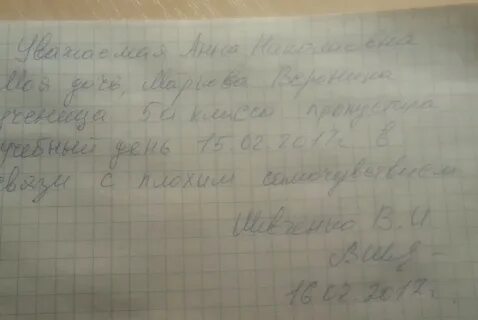 Уважаемая Анна Николаевна
Моя дочь, Марьева Вероника
ученица 5а класса пропустила
учебный день 15.02.2017г. в
связи с плохим самочувствием
Шевченко В.И
16.02.2017г.